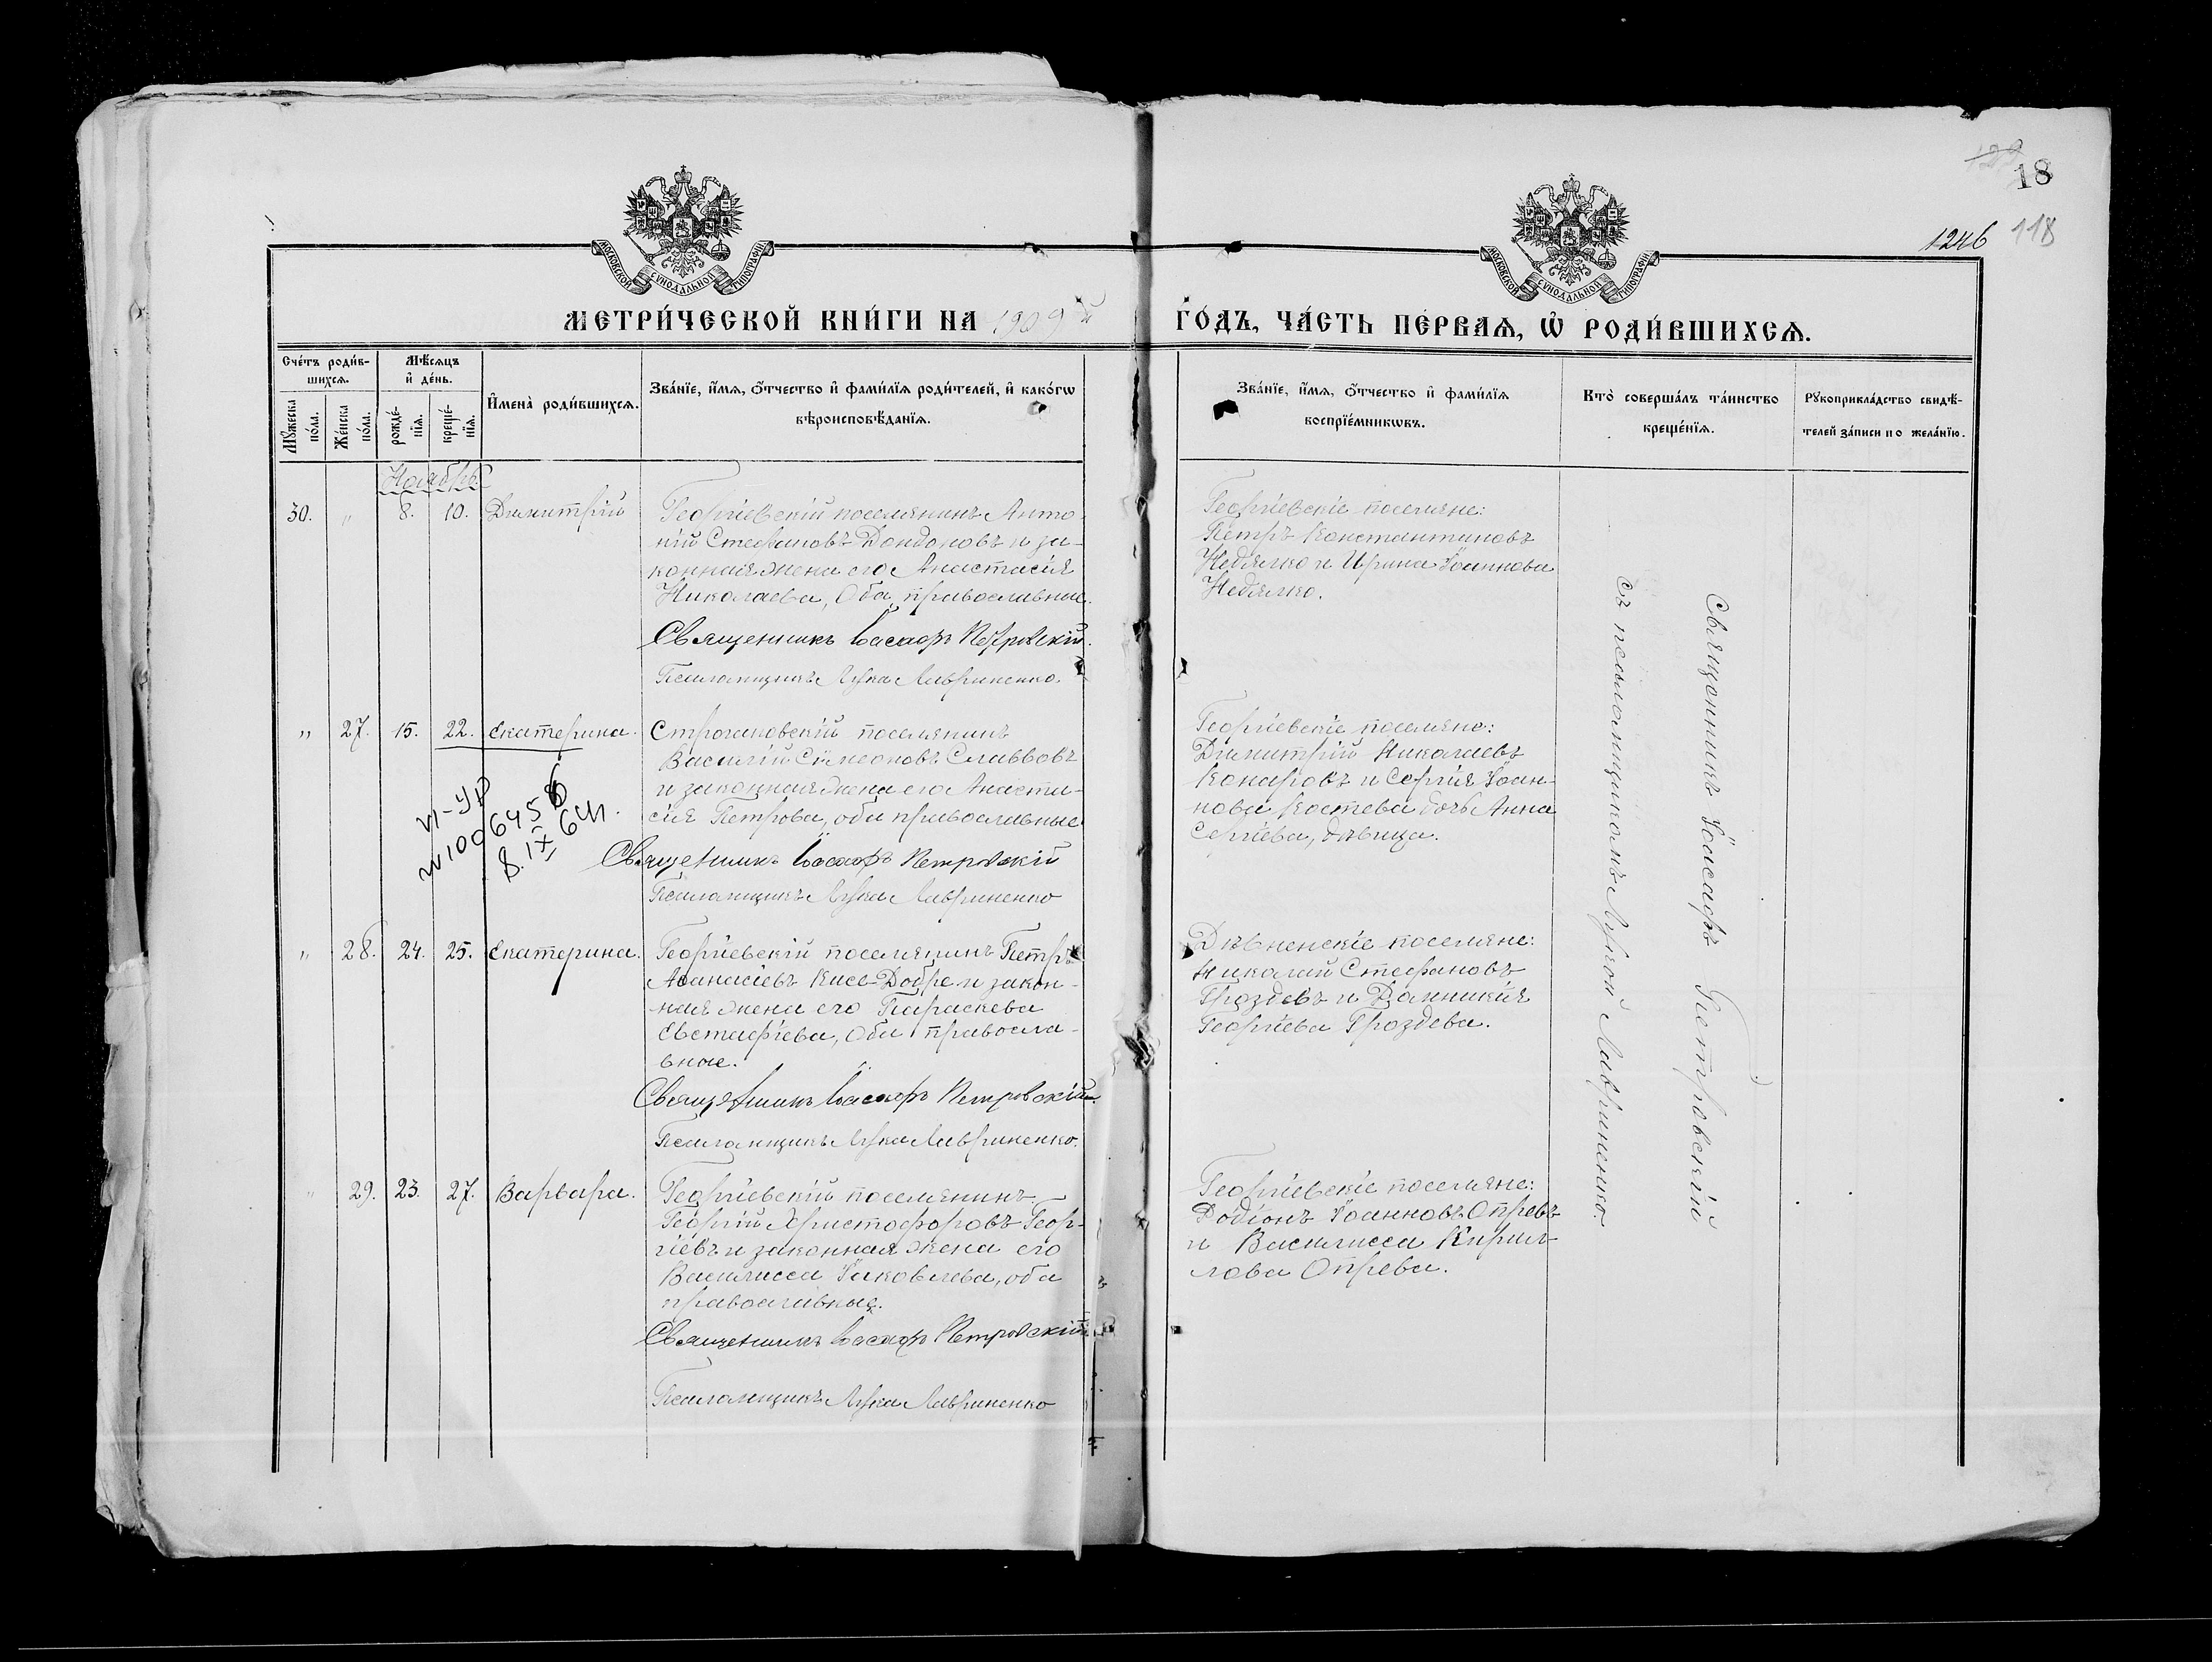 18
118
1246
МОСКОВСКОЙ СѴНОДАЛЬНОЙ ТИПОГРАФІИ
МОСКОВСКОЙ СѴНОДАЛЬНОЙ ТИПОГРАФІИ
МЕТРИ́ЧЕСКОЙ КНИ́ГИ НА 1909й
ГО́ДЪ, ЧА́СТЬ ПЕ́РВАѦ, Ѡ҆ РОДИ́ВШИХСѦ.
Сче́тъ роди́в-
шихсѧ.
Мꙋ́жеска по́ла.
Же́нска по́ла.
Мѣ́сѧцъ
и҆ де́нь.
рожде́-
нїѧ.
креще́-
нїѧ.
И҆мена̀ роди́вшихсѧ.
Зва́нїе, и҆́мѧ, ѻ҆́тчество и҆ фами́лїѧ роди́телей, и҆ како́гѡ
вѣроисповѣ́данїѧ.
Зва́нїе, и҆́мѧ, ѻ҆́тчество и҆ фами́лїѧ
воспрїе́мникѡвъ.
Кто̀ соверша́лъ та́инство
креще́нїѧ.
Рꙋкоприкла́дство свидѣ́-
телей за́писи по жела́нїю.
Ноябрь
30. " 8. 10. Димитрій
Георгіевскій поселянинъ Анто-
ній Стефановъ Дондоновъ и за-
конная жена его Анастасія
Николаева, оба православные.
Священникъ Іоасафъ Петровскій.
Псаломщикъ Лука Лавриненко.
Георгіевскіе поселяне:
Петръ Константиновъ
Недялко и Ирина Іоаннова
Недялко.
" 27. 15. 22. Екатерина.
Строгановскій поселянинъ
Василій Симеоновъ Славвовъ
и законная жена его Анаста-
сія Петрова, оба православные
Священникъ Іоасафъ Петровскій
Псаломщикъ Лука Лавриненко
Георгіевскіе поселяне:
Димитрій Николаевъ
Конаровъ и Сергія Іоан-
нова Костева дочь Анна
Сергіева, дѣвица.
8.IX 64
" 28. 24. 25. Екатерина.
Георгіевскій поселянинъ Петръ
Аѳанасіевъ Кисе-Добре и закон-
ная жена его Параскева
Евстафіева, оба правосла-
вные.
Священникъ Іоасафъ Петровскій.
Псаломщикъ Лука Лавриненко.
Дѣвненскіе поселяне:
Николай Стефановъ
Гроздевъ и Домникія
Георгіева Гроздева.
" 29. 23. 27. Варвара.
Георгіевскій поселянинъ
Георгій Христофоровъ Геор-
гіевъ и законная жена его
Василисса Іаковлева, оба
православные.
Священникъ Іоасафъ Петровскій
Псаломщикъ Лука Лавриненко
Георгіевскіе поселяне:
Родіонъ Іоанновъ Опревъ
и Василисса Кирил-
лова Опрева.
Священникъ Іоасафъ Петровскій
съ псаломщикомъ Лукой Лавриненко.